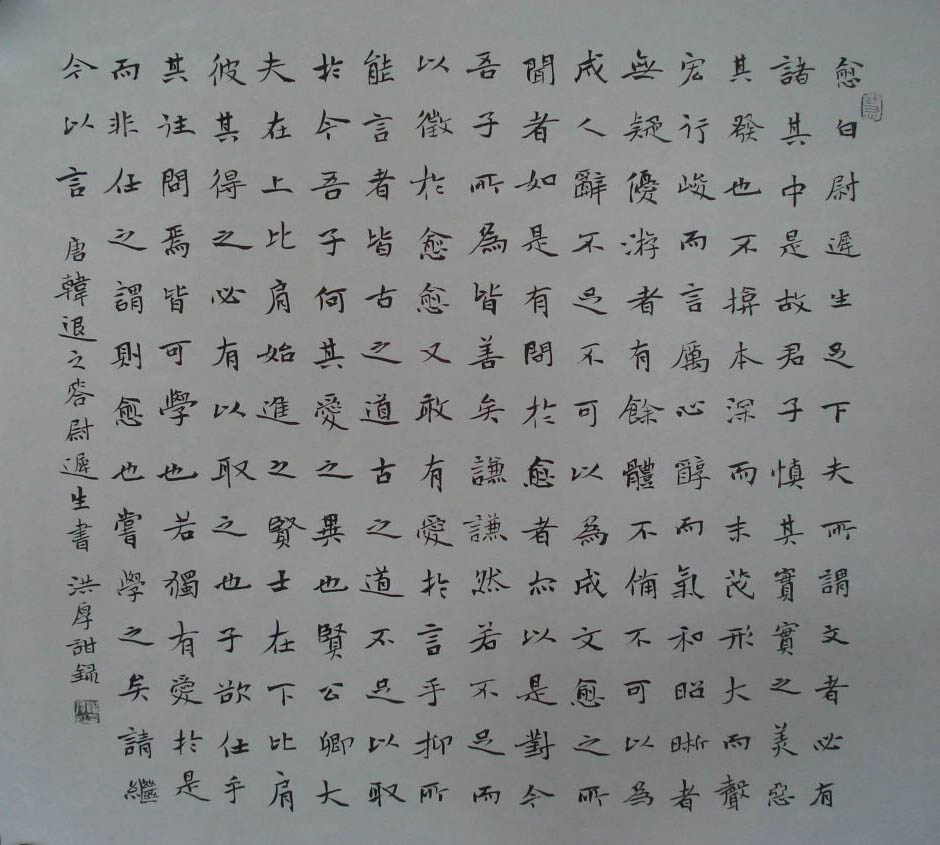 愈白尉遲生足下夫所謂文者必有
諸其中是故君子慎其實實之美惡
其發也不揜本深而末茂形大而聲
宏行峻而言厲心醇而氣和昭晰者
無疑優游者有餘體不備不可以為
成人辭不足不可以為成文愈之所
聞者如是有問於愈者亦以是對今
吾子所為皆善矣謙謙然若不足而
以徵於愈愈又敢有愛於言乎抑所
能言者皆古之道古之道不足以取
於今吾子何其愛之異也賢公卿大
夫在上比肩始進之賢士在下比肩
彼其得之必有以取之也子欲仕乎
其往問焉皆可學也若獨有愛於是
而非仕之謂則愈也嘗學之矣請繼
今以言 唐韓退之答尉遲生書 洪厚甜録